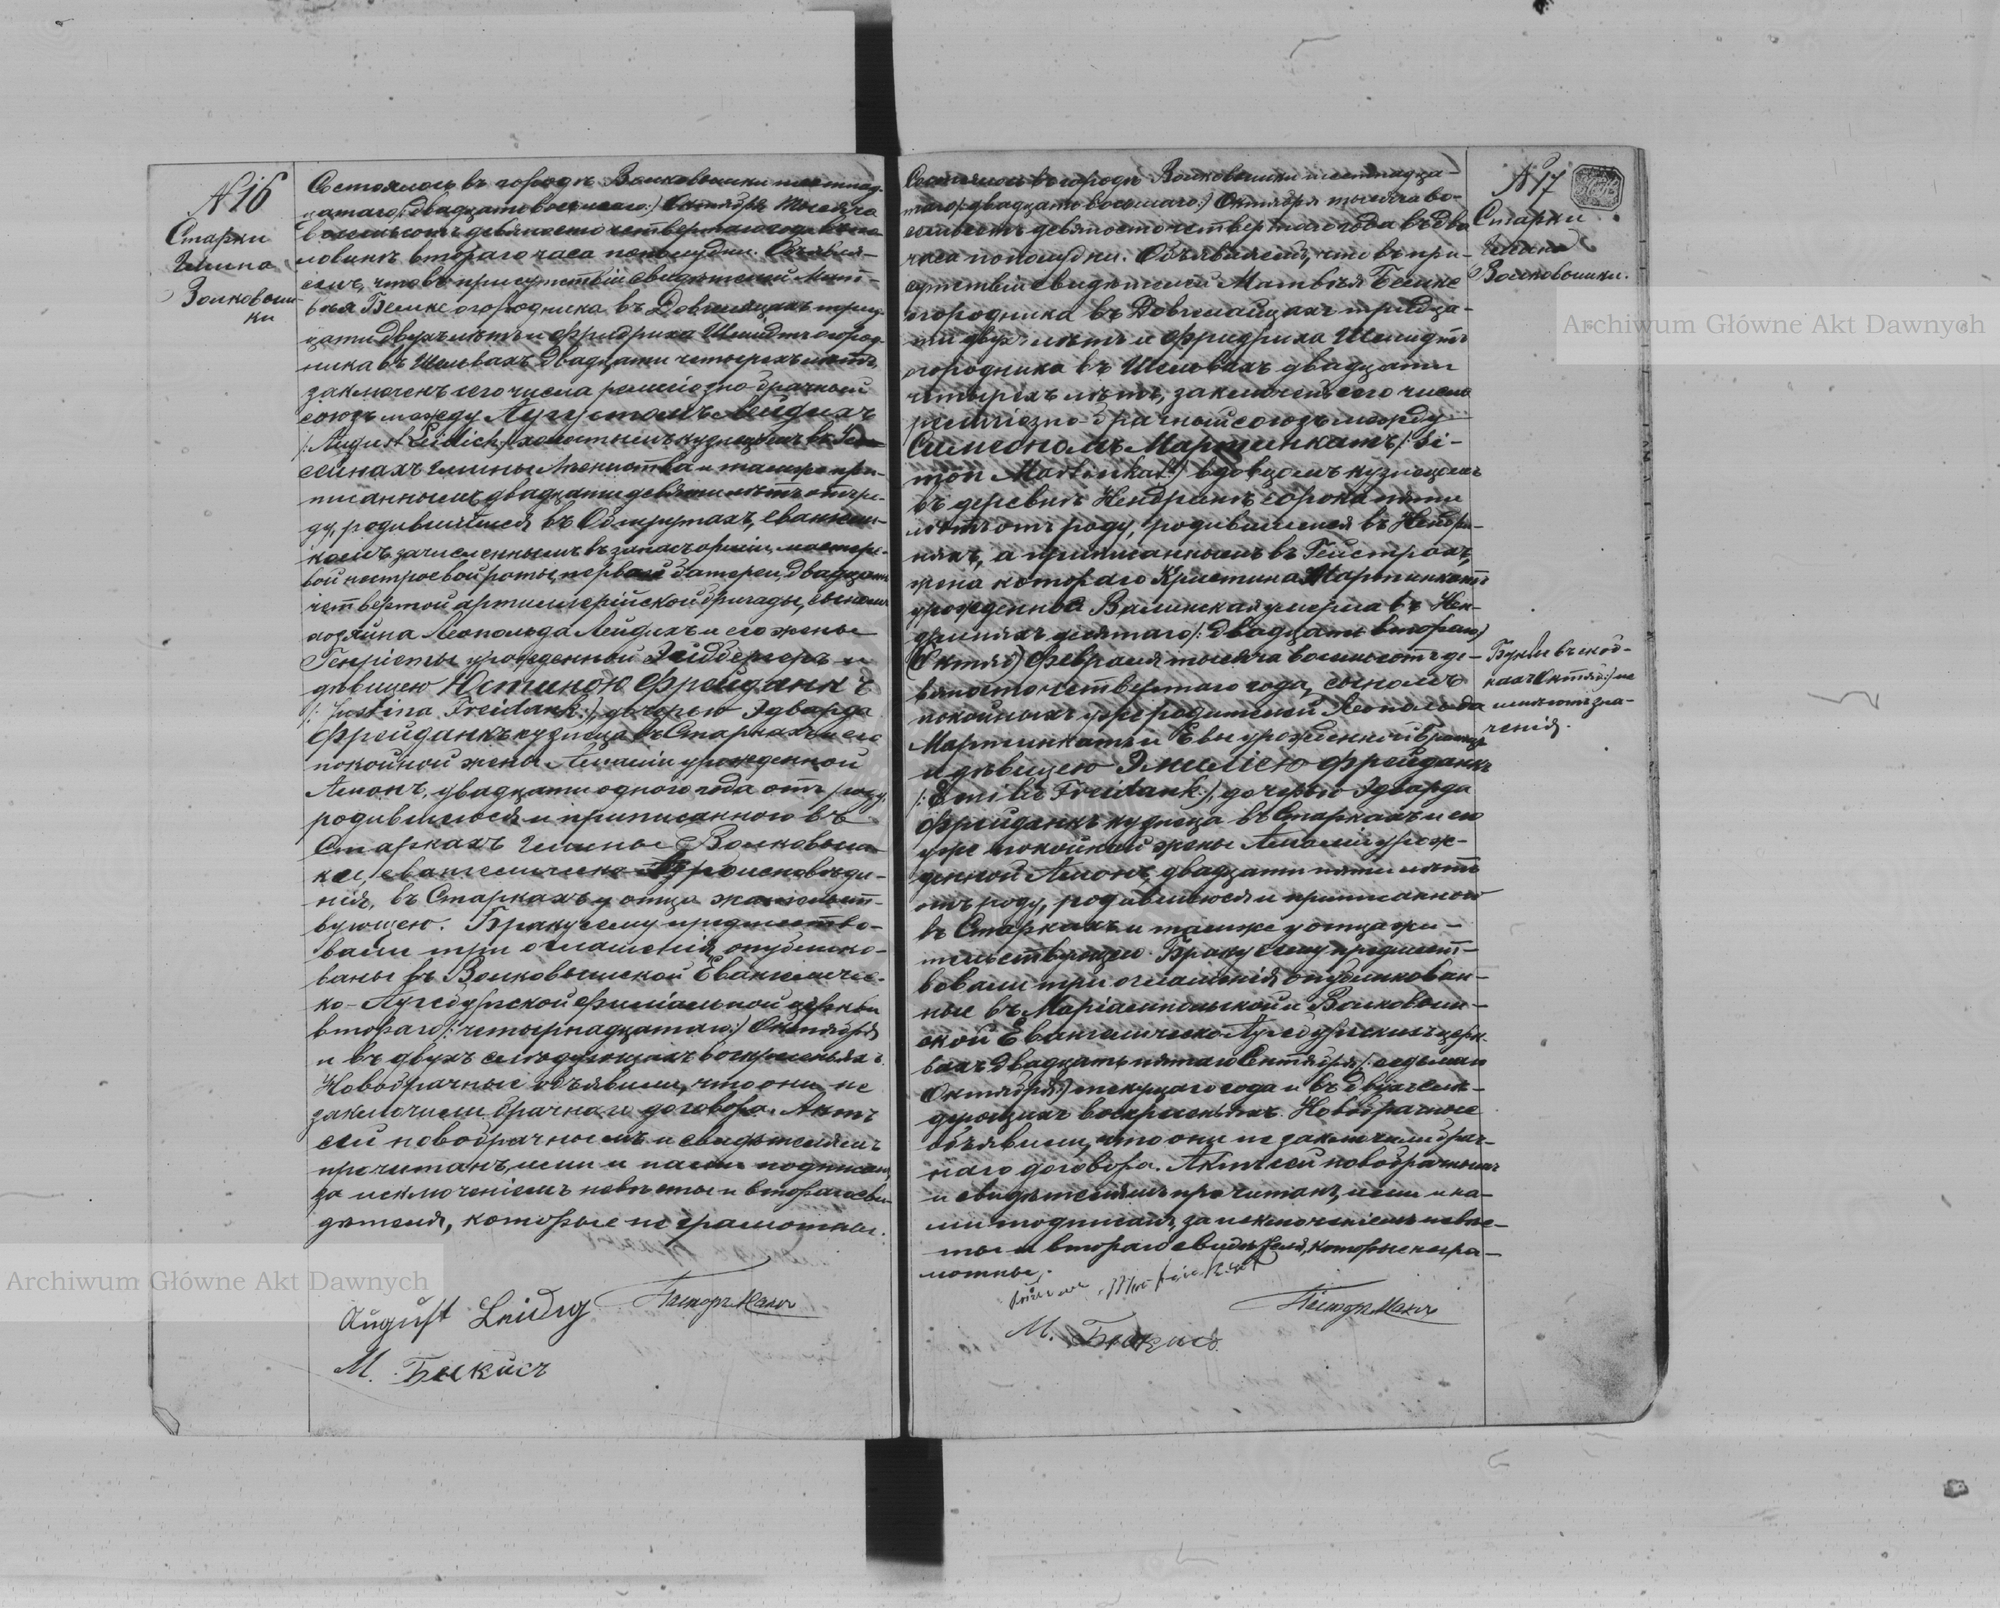 № 16
Старки
Гмина
Волковыш-
ки
Состоялось въ городѣ Волковышки шестнад-
цатаго /: двадцать восьмаго :/ Октября тысяча
восемьсотъ девяносто четвертаго года въ по-
ловинѣ втораго часа пополудни. Объявля-
емъ, что въ присутствіи свидѣтелей Мат-
вѣя Бекис огородника въ трид-
цати двухъ лѣтъ и Фридриха Шмидтъ огород-
ника въ Шельвахъ двадцати четырехъ лѣтъ,
заключенъ сего числа религіозно-брачный
союзъ между Августомъ Лейдихъ
/: August Leidich :/ холостымъ кузнецомъ въ
гмины и тамже при-
писаннымъ двадцати девяти лѣтъ отъ ро-
ду, родившимся въ Обшрутахъ,
зачисленнымъ въ запасъ арміи, мастеро-
вой нестроевой роты, первой батареи, двадцать
четвертой артиллерійской бригады, сыномъ
хозяина Леопольда Лейдихъ и его жены
Генріеты урожденной и
дѣвицею Юстиною Фрейданкъ
/: Justina Freidank :/, дочерью Эдварда
Фрейданкъ кузнеца въ Старкахъ и его
покойной жены Амаліи урожденной
двадцати одного года отъ роду,
родившеюся и приписанною въ
Старкахъ гмины Волковыш-
ки, евангелическо исповѣда-
нія, въ Старкахъ у отца жительст-
вующею. Браку сему предшество-
вали три оглашенія, опублико-
ваны въ Волковышской Евангеличес-
ко-Аугсбургской филіальной церкви
втораго /: четырнадцатаго :/ Октября
и въ двухъ слѣдующихъ воскресеньяхъ.
Новобрачные объявили, что они не
заключили брачнаго договора. Актъ
сей новобрачнымъ и свидѣтелямъ
прочитанъ, ими и нами подписанъ,
за исключеніемъ невѣсты и втораго сви-
дѣтеля, которые не грамотны.
August Leidig Пасторъ
М. Бекисъ
№ 17
Старки
Гмина
Волковышки.
Состоялось въ городѣ Волковышки шестнадца-
таго /: двадцать восьмаго :/ Октября тысяча во-
семьсотъ девяносто четвертаго года въ два
часа пополудни. Объявляемъ, что въ при-
сутствіи свидѣтелей Матвѣя Бекис
огородника въ тридца-
ти двухъ лѣтъ и Фридриха Шмидтъ
огородника въ Шельвахъ двадцати
четырехъ лѣтъ, заключенъ сего числа
религіозно-брачный союзъ между
Симеономъ Мартинкатъ /: Si-
mon Martinkat :/ вдовцомъ кузнецомъ
въ деревнѣ сорока пяти
лѣтъ отъ роду, родившимся въ
а приписаннымъ въ Гейстрахъ,
жена котораго Кристина Мартинкатъ
урожденная Валинская умерла въ
десятаго /: двадцать втораго
Октяб :/ Февраля тысяча восемьсотъ де-
вяносто четвертаго года, сыномъ
покойныхъ уже родителей Леопольда
Мартинкатъ и Евы урожденной
и дѣвицею Эмиліею Фрейданкъ
/: Emilie Freidank :/, дочерью Эдварда
Фрейданкъ кузнеца въ Старкахъ и его
уже покойной жены Амаліи урож-
денной двадцати пяти лѣтъ
отъ роду, родившеюся и приписанною
въ Старкахъ и тамже у отца жи-
тельствующею. Браку сему предшест-
вовали три оглашенія опубликован-
ные въ Маріампольской и Волковыш-
ской Евангелическо-Аугсбургскихъ церк-
вахъ двадцать пятаго Сентября /: седьмаго
Октября :/ текущаго года и въ двухъ слѣ-
дующихъ воскресеньяхъ. Новобрачные
объявили, что они не заключили брач-
наго договора. Актъ сей новобрачнымъ
и свидѣтелямъ прочитанъ, ими и на-
ми подписанъ, за исключеніемъ невѣс-
ты и втораго свидѣтеля, которые негра-
мотны.
Буквы въ скоб-
кахъ Октяб :/ не
имѣютъ зна-
ченія.
Пасторъ
М. Бекисъ
Archiwum Główne Akt Dawnych
Archiwum Główne Akt Dawnych